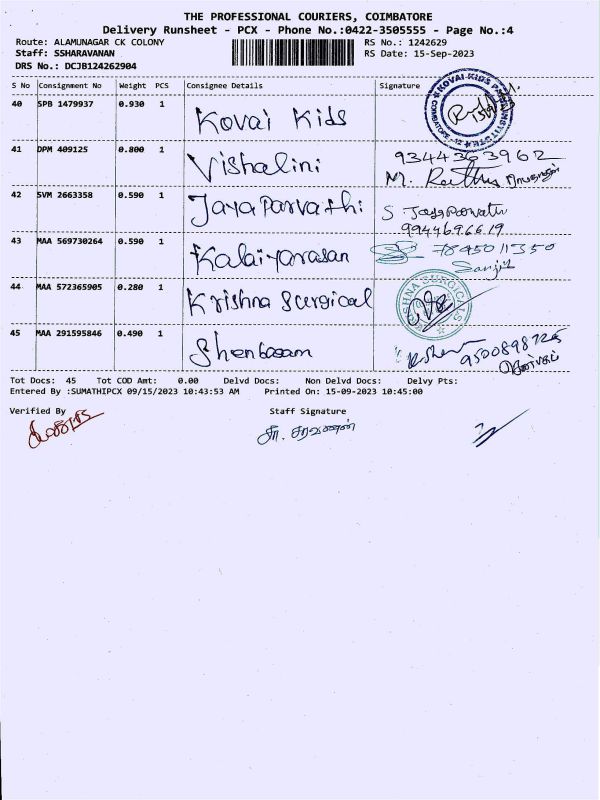 THE PROFESSIONAL COURIERS, COIMBATORE
Delivery Runsheet - PCX - Phone No.:0422-3505555 - Page No.:4
Route: ALAMUNAGAR CK COLONY RS No.: 1242629
Staff: SSHARAVANAN RS Date: 15-Sep-2023
DRS No.: DCJB124262904
S No Consignment No Weight PCS Consignee Details Signature
40 SPB 1479937 0.930 1 Kovai Kids
41 DPM 409125 0.800 1 Vishalini 9344363962
M.
42 SVM 2663358 0.590 1 Jayaparvathi S Jayaparvathi
9944696619
43 MAA 569730264 0.590 1 Kalaiyarasan 7845011350
Sanjit
44 MAA 572365905 0.280 1 Krishna Surgical
45 MAA 291595846 0.490 1 Shenbagam 9500898725
Tot Docs: 45 Tot COD Amt: 0.00 Delvd Docs: Non Delvd Docs: Delvy Pts:
Entered By :SUMATHIPCX 09/15/2023 10:43:53 AM Printed On: 15-09-2023 10:45:00
Verified By Staff Signature
சீ. சரவணன்